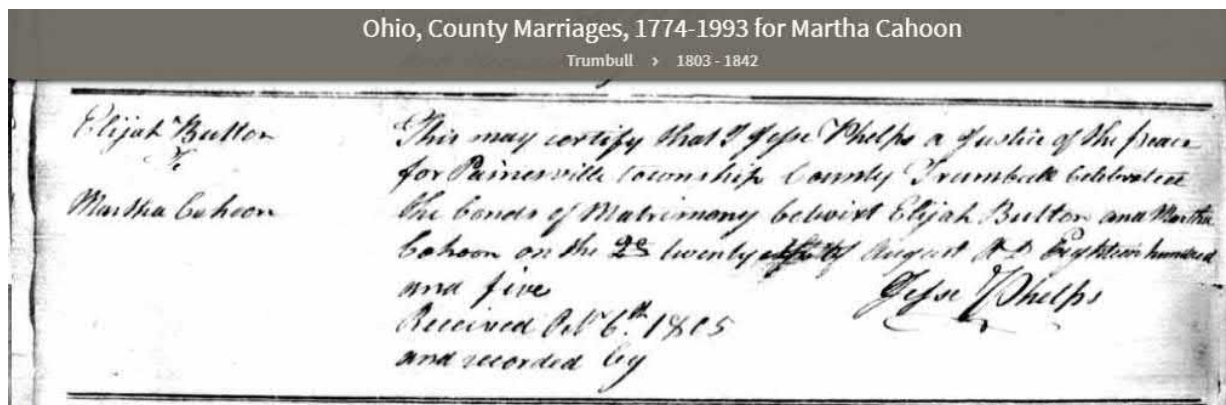 Ohio, County Marriages, 1774-1993 for Martha Cahoon
Trumbull > 1803 - 1842
Elijah Button
&
Martha Cahoon
This may certify that I Jesse Phelps a Justice of the peace
for Painesville township County Trumbull Celebrated
the bonds of Matrimony betwixt Elijah Button and Martha
Cahoon on the 28 twenty August A D Eighteen hundred
and five
Jesse Phelps
Received Octr 6th 1805
and recorded by